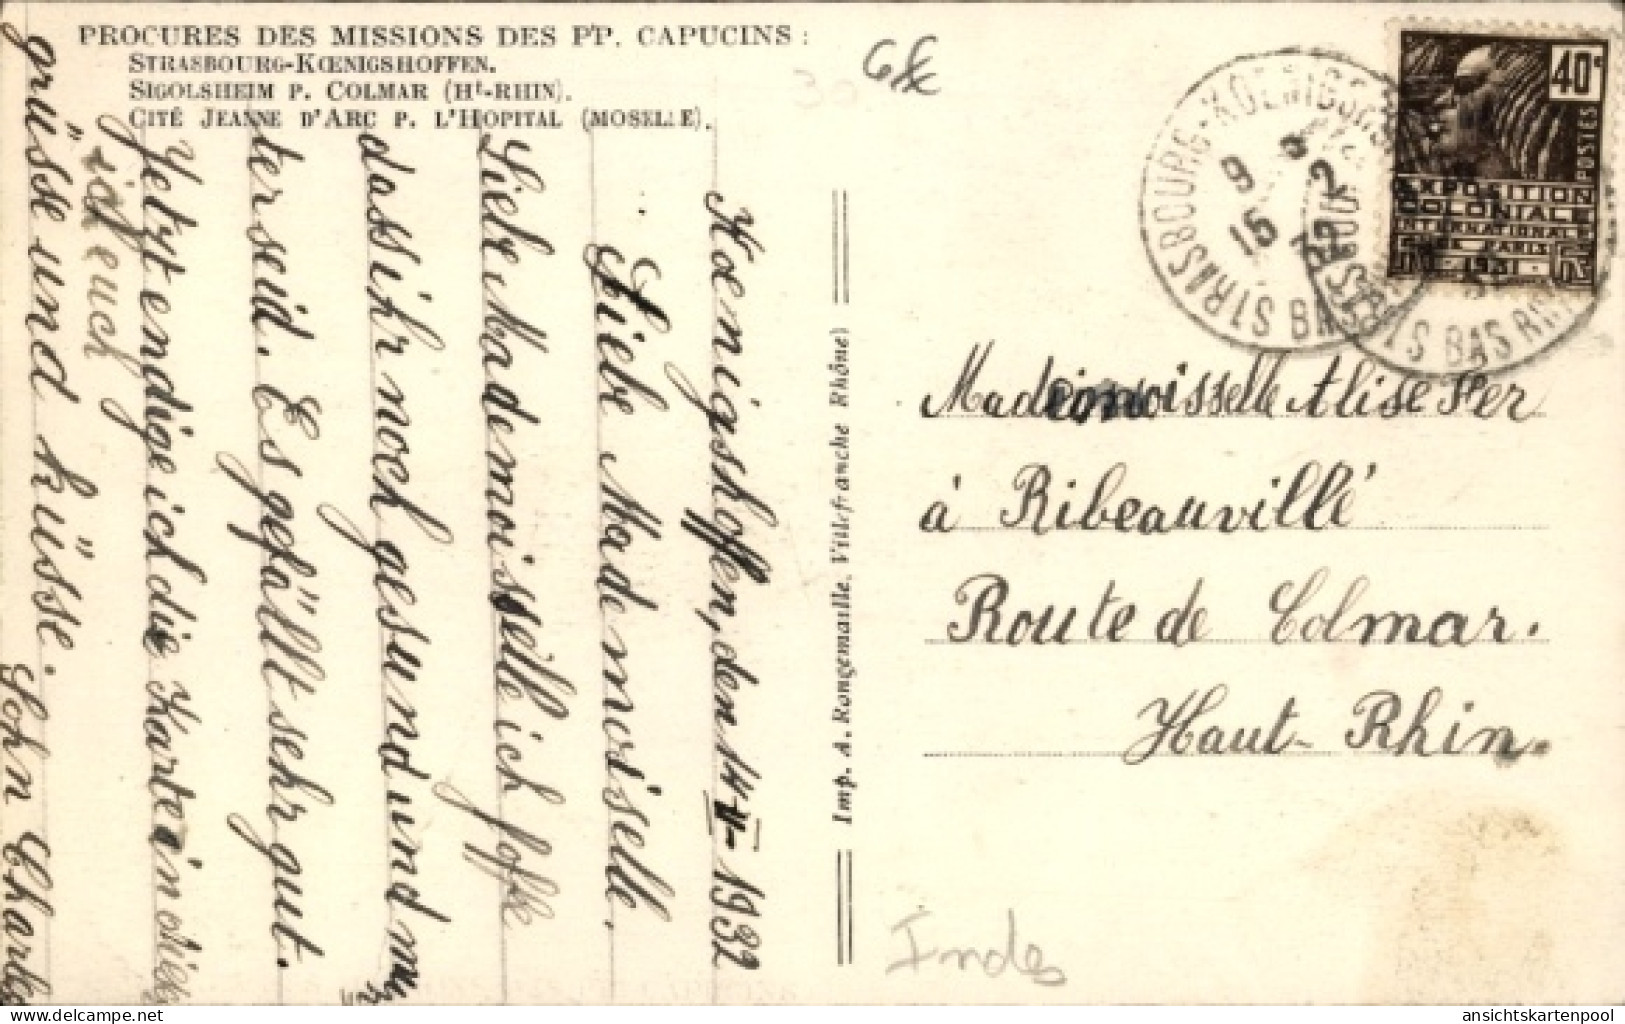 PROCURES DES MISSIONS DES PP. CAPUCINS :
STRASBOURG-KŒNIGSHOFFEN.
SIGOLSHEIM P. COLMAR (Ht-RHIN).
CITÉ JEANNE D'ARC P. L'HOPITAL (MOSELLE).
Koenigshoffen, den 14 II - 1932
Liebe Mademoiselle.
Liebe Mademoisselle ich hoffe
dass ihr noch gesund und mun
ter seid. Es gefällt sehr gut.
Jetzt endige ich die Karte indem
ich euch
grüsse und küsse.
Sohn Charles
Imp. A. Rongemaille. Villefranche Rhône)
40c
POSTES
EXPOSITION
COLONIALE
INTERNATIONALE
PARIS
1931
STRASBOURG-KOENIGSHOFFEN
BAS RHIN
15
9
2
32
Mademoisselle Alise
à Ribeauvillé
Route de Colmar.
Haut-Rhin.
Indes
ansichtskartenpool.de/delcampe.net
ansichtskartenpool